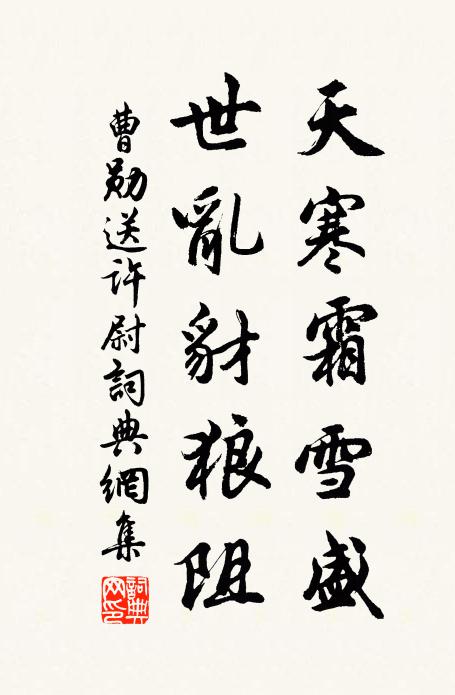 天寒霜雪盛
世亂豺狼阻
曹勛送許尉詞典網集
詞典網印